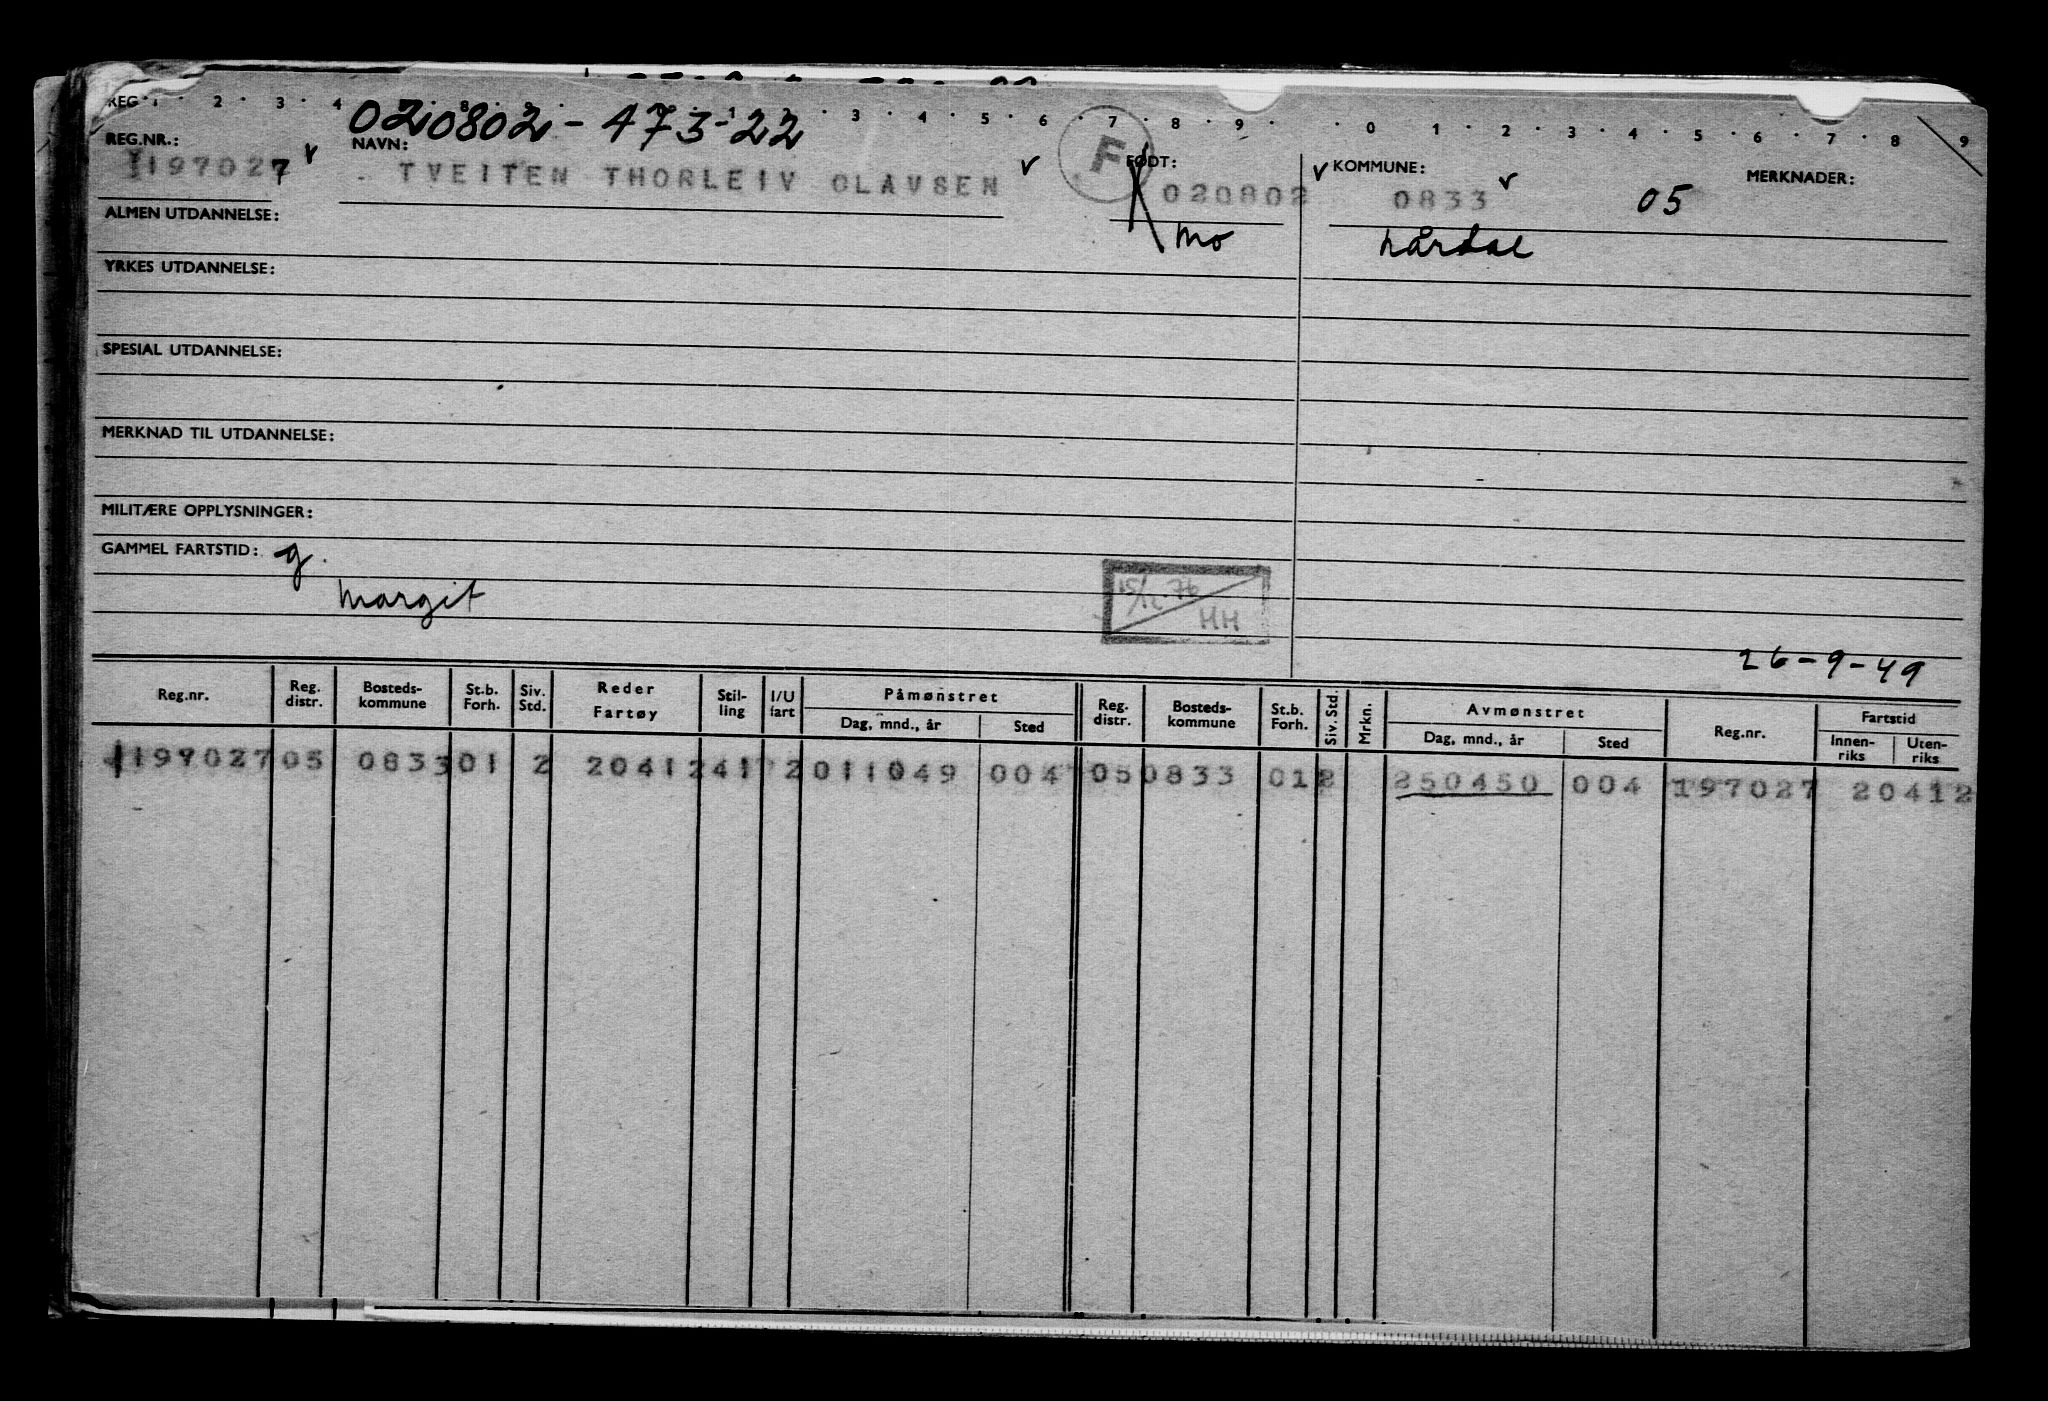 REG 1 · 2 · 3 · 4 · 3 · 4 · 5 · 6 · 7 · 8 · 9 · · 0 · 1 · 2 · 3 · 4 · 5 · 6 · 7 · 8 9
020802 - 473-22
REG.NR.: NAVN: FØDT: KOMMUNE: MERKNADER:
197027 TVEITEN THORLEIV OLAVSEN F 020802 0833 05
ALMEN UTDANNELSE: Mo Lårdal
YRKES UTDANNELSE:
SPESIAL UTDANNELSE:
MERKNAD TIL UTDANNELSE:
MILITÆRE OPPLYSNINGER:
GAMMEL FARTSTID: g.
Margit
15/12.76 HH
26-9-49
Reg.nr. Reg. distr. Bosteds-kommune St.b. Forh. Siv. Std. Reder Fartøy Stil-ling I/U fart Påmønstret Dag, mnd., år Sted Reg. distr. Bosteds-kommune St.b. Forh. Siv. Std. Mrkn. Avmønstret Dag, mnd., år Sted Reg.nr. Fartstid Innen-riks Uten-riks
197027 05 0833 01 2 20412 41 2 011049 004 05 0833 01 2 250450 004 197027 20412